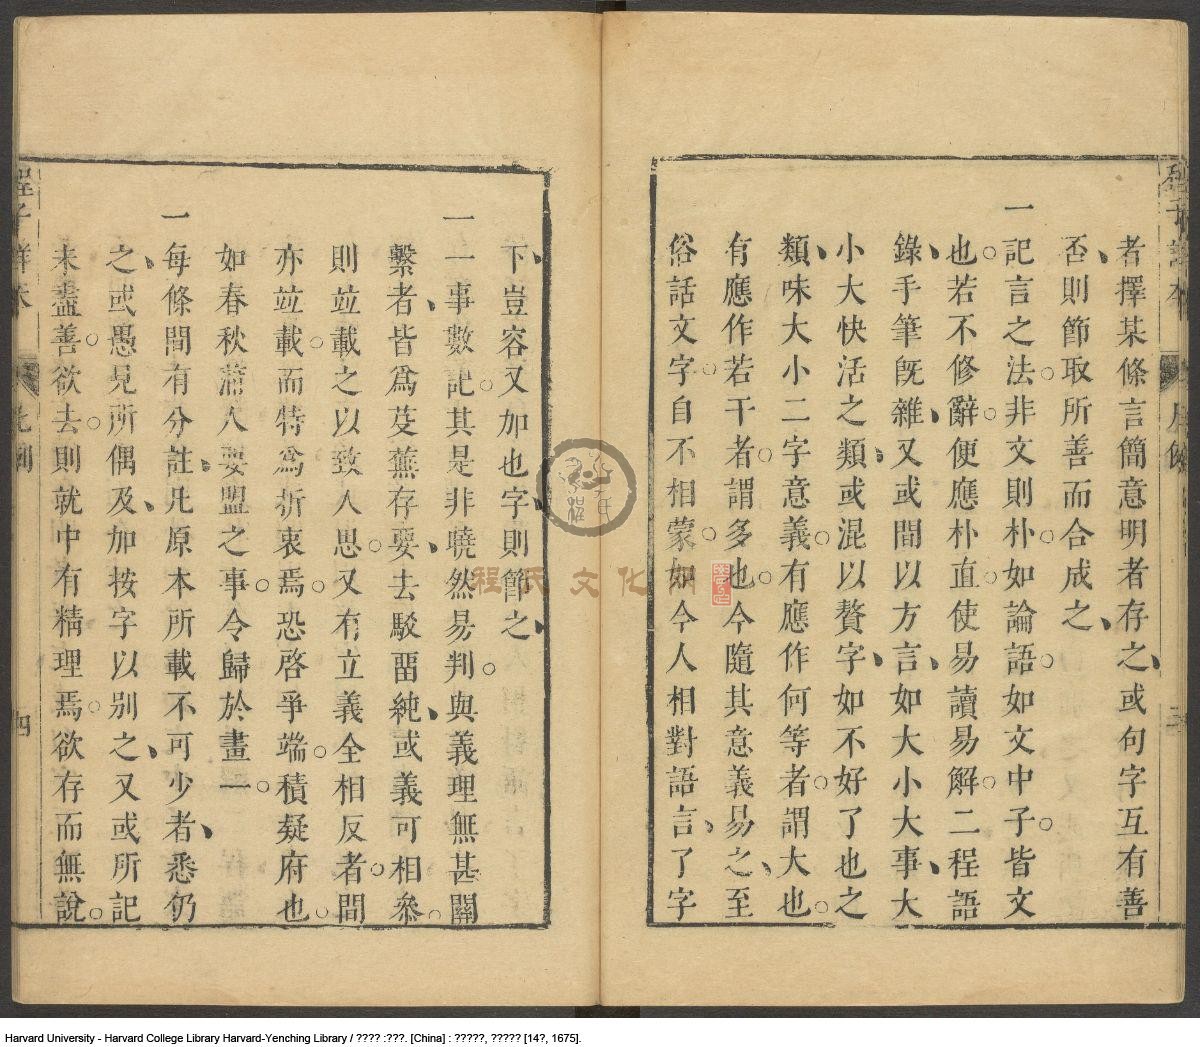 者擇某條言簡意明者存之、或句字互有善
否、則節取所善而合成之、
一記言之法。非文則朴。如論語。如文中子。皆文
也。若不修辭。便應朴直。使易讀易解。二程語
錄、手筆旣雜、又或間以方言、如大小大事、大
小大快活之類、或混以贅字、如不好了也之
類、味大小二字意義。有應作何等者。謂大也。
有應作若干者。謂多也。今隨其意義易之、至
俗話文字。自不相蒙。如今人相對語言、了字
下、豈容又加也字、則節之、
一一事數記。其是非曉然易判。與義理無甚關
繫者、皆爲芟蕪存要、去駁畱純、或義可相叅。
則竝載之以致人思。又有立義全相反者。間
亦竝載。而特爲折衷焉。恐啓爭端。積疑府也。
如春秋 人要盟之事。今歸於畫一。
一每條間有分註、凡原本所載不可少者、悉仍
之、或愚見所偶及、加按字以别之、又或所記
未盡善。欲去。則就中有精理焉。欲存而無說。
四
程氏文化网
Harvard University - Harvard College Library Harvard-Yenching Library / ???? :???. [China] : ?????, ????? [14?, 1675].